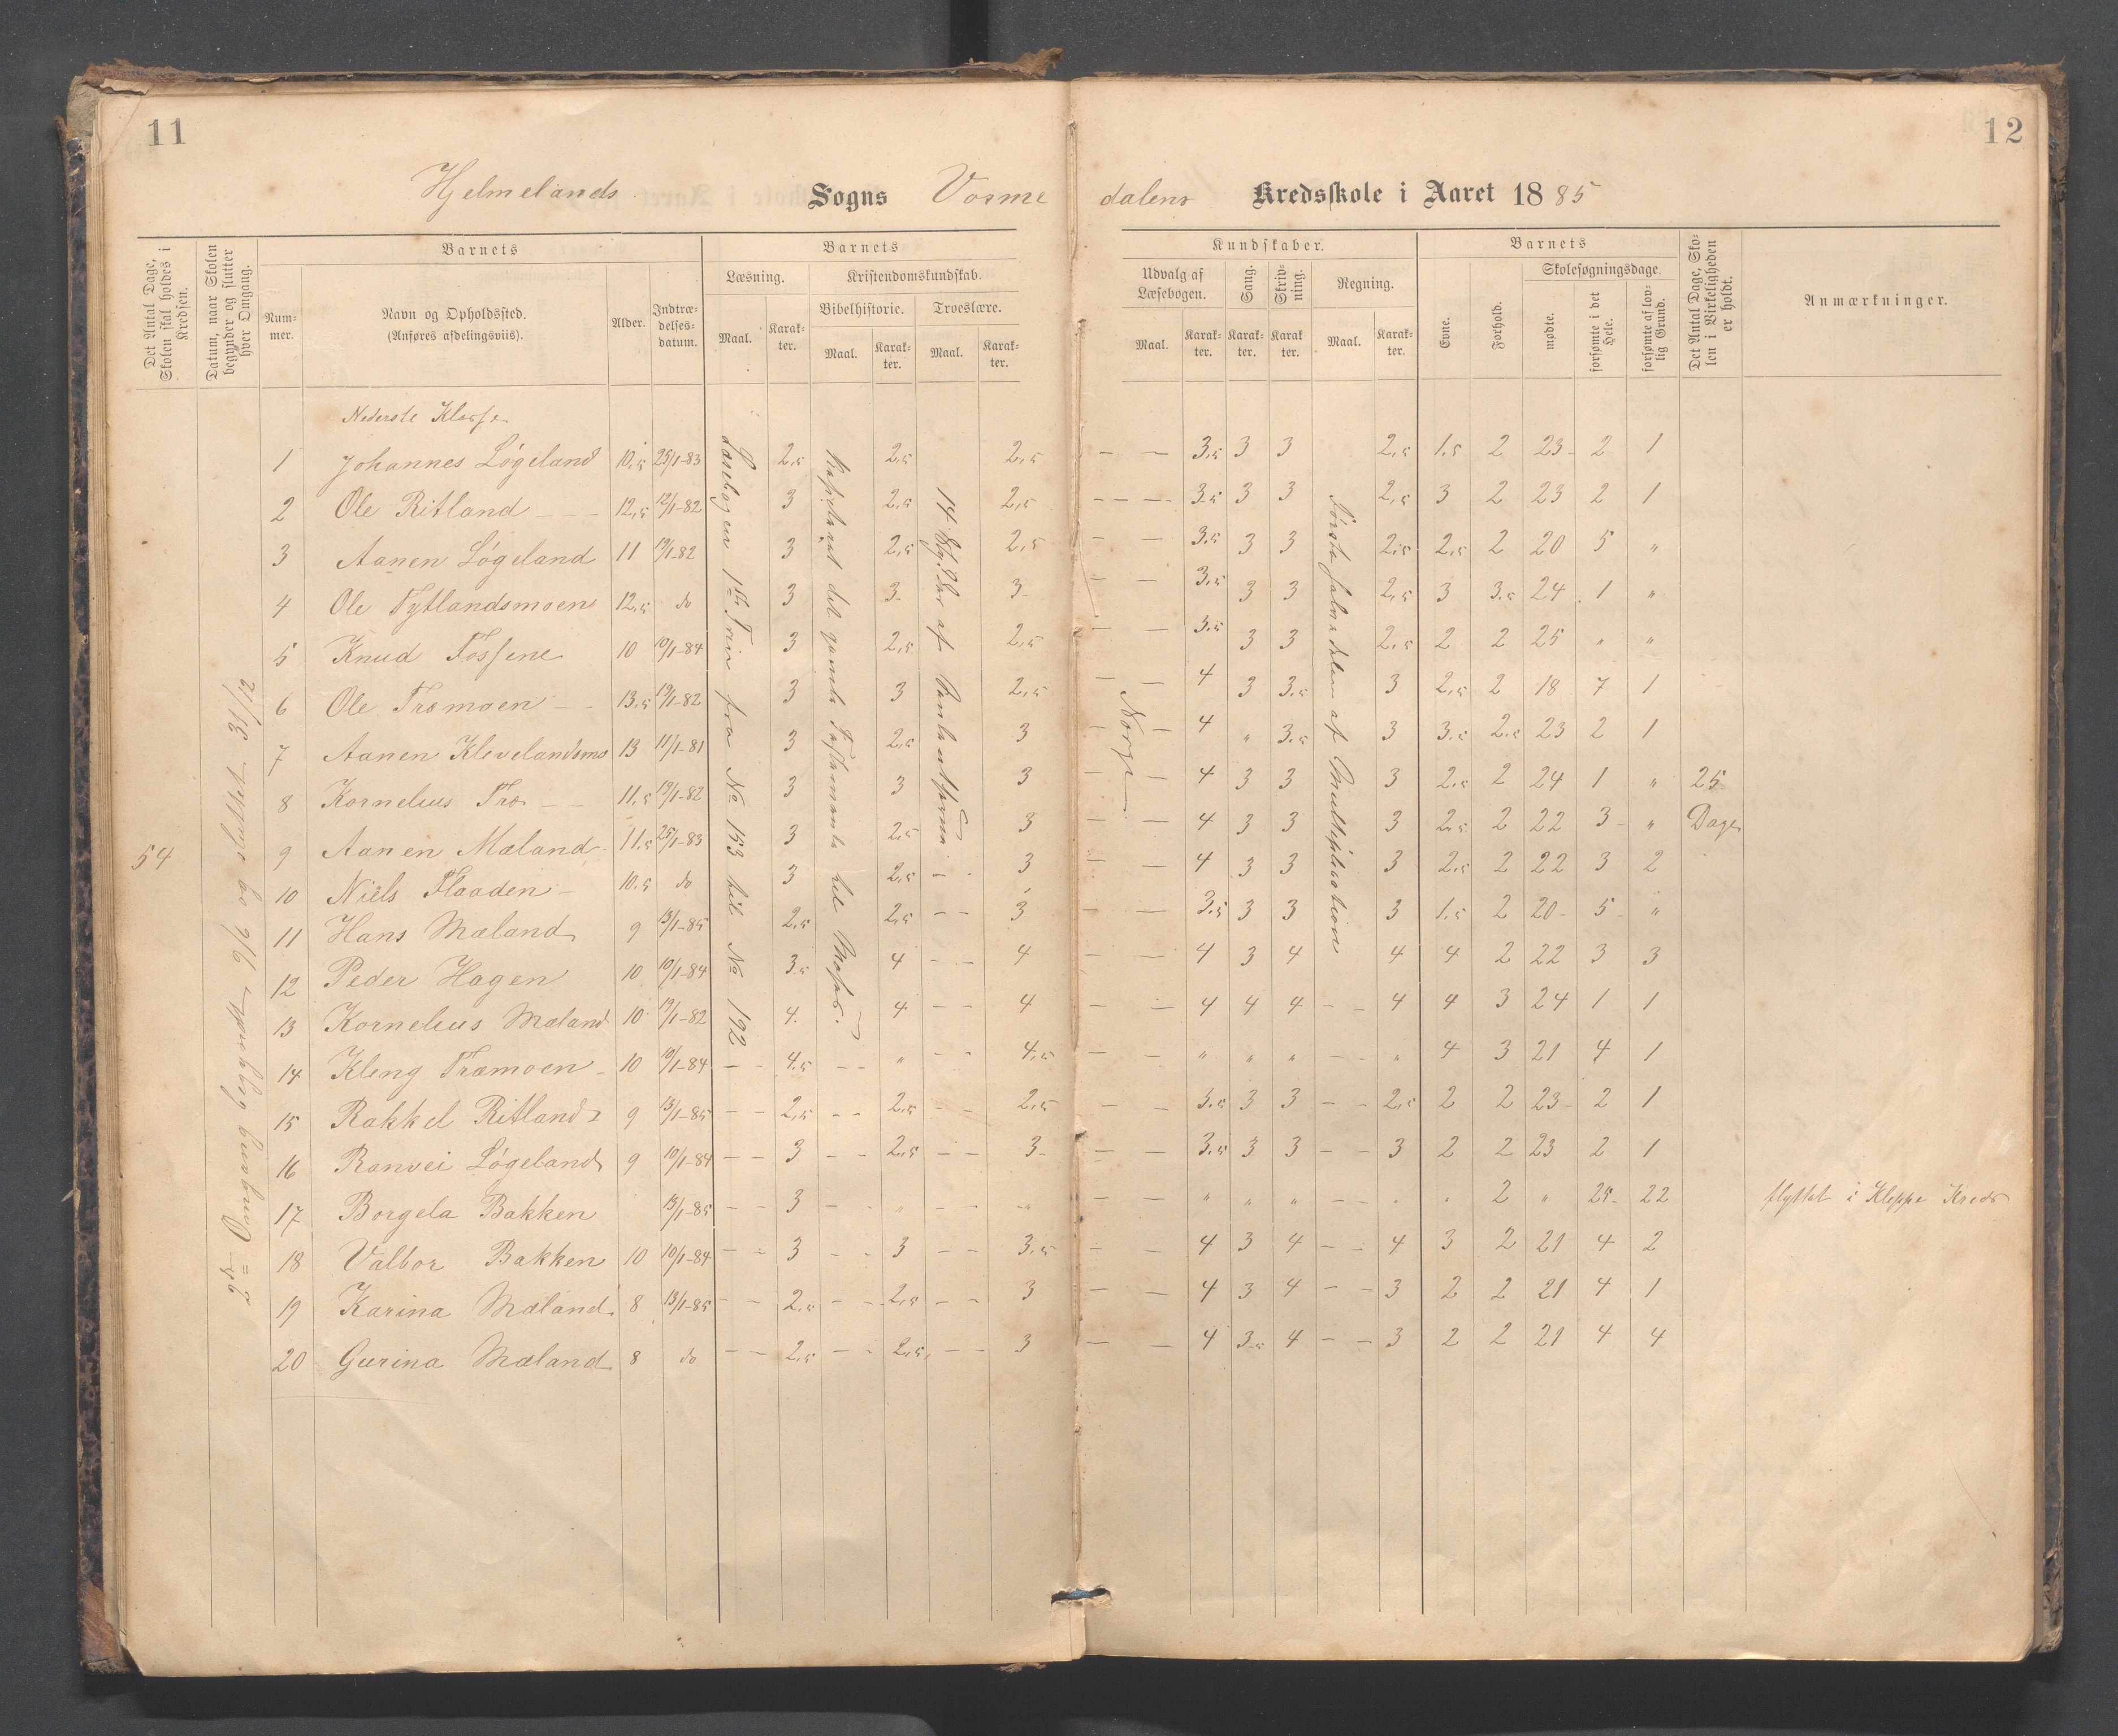 11
12
Hjelmelands Sogns Vorme dalens Kredsskole i Aaret 1885
Det Antal Dage, Skolen skal holdes i Kredsen.
Datum, naar Skolen begynder og slutter hver Omgang.
Barnets
Nummer.
Navn og Opholdssted.
(Anføres afdelingsviis).
Alder.
Indtrædelsesdatum.
Barnets
Læsning.
Maal.
Karakter.
Kristendomskundskab.
Bibelhistorie.
Maal.
Karakter.
Troeslære.
Maal.
Karakter.
Kundskaber.
Udvalg af Læsebogen.
Maal.
Karakter.
Sang.
Karakter.
Skrivning.
Karakter.
Regning.
Maal.
Karakter.
Barnets
Evne.
Forhold.
Skolesøgningsdage.
mødte.
forsømte i det Hele.
forsømte af lovlig Grund.
Det Antal Dage, Skolen i Virkeligheden er holdt.
Anmærkninger.
Nederste Klasse
1 Johannes Løgeland 10,5 25/1-83 2,5 2,5 2,5 — — 3,5 3 3 2,5 1,5 2 23 2 1
2 Ole Ritland 12,5 12/1-82 3 2,5 2,5 — — 3,5 3 3 2,5 3 2 23 2 1
3 Aanen Løgeland 11 19/1-82 3 2,5 2,5 — — 3,5 3 3 2,5 2,5 2 20 5 "
4 Ole Tytlandsmoen 12,5 do 3 3 3 — — 3,5 3 3 2,5 3 3,5 24 1 "
5 Knud Fossene 10 10/1-84 3 2,5 2,5 — — 3,5 3 3 2,5 2 2 25 " "
6 Ole Træmoen 13,5 19/1-82 3 3 2,5 — — 4 3 3,5 3 2,5 2 18 7 1
7 Aanen Klevelandsmo 13 11/1-81 3 2,5 3 — — 4 " 3,5 3 3,5 2,5 23 2 1
8 Kornelius Træ 11,5 19/1-82 3 3 3 — — 4 3 3 3 2,5 2 24 1 " 25
9 Aanen Mæland 11,5 25/1-83 3 2,5 3 — — 4 3 3 3 2,5 2 22 3 " Dage
54
10 Niels Flaaden 10,5 do 3 2,5 — 3 — — 4 3 3 3 2,5 2 22 3 2
11 Hans Mæland 9 13/1-85 2,5 2,5 — — 3 — — 3,5 3 3 3 1,5 2 20 5 "
12 Peder Hagen 10 10/1-84 3,5 4 — — 4 — — 4 3 4 4 4 2 22 3 3
13 Kornelius Mæland 10 19/1-82 4 4 — — 4 — — 4 4 4 — 4 4 3 24 1 1
14 Kleng Træmoen 10 10/1-84 — — 4,5 — — " — — 4,5 — — " " " — — " 4 3 21 4 1
15 Rakkel Ritland 9 13/1-85 — — 2,5 — — 2,5 — — 2,5 — — 3,5 3 3 — — 2,5 2 2 23 2 1
16 Ranvei Løgeland 9 10/1-84 — — 3 — — 2,5 — — 3 — — 3,5 3 3 — — 3 2 2 23 2 1
17 Borgela Bakken 13/1-85 — — 3 — — " — — " — — " " " — — " " 2 " 25 22 flyttet i Kleppe Kreds
18 Valbor Bakken 10 10/1-84 — — 3 — — 3 — — 3,5 — — 4 3 4 — — 4 3 2 21 4 2
19 Karina Mæland 8 13/1-85 — — 2,5 — — 2,5 — — 3 — — 4 3 4 — — 3 2 2 21 4 1
20 Gurina Mæland 8 do — — 2,5 — — 2,5 — — 3 — — 4 3,5 4 — — 3 2 2 21 4 4
Læsebogen 1ste Trin fra No 153 til No 192
det gamle Testamente til Moses.
14
af
Norge
Første halvdelen af Multiplication